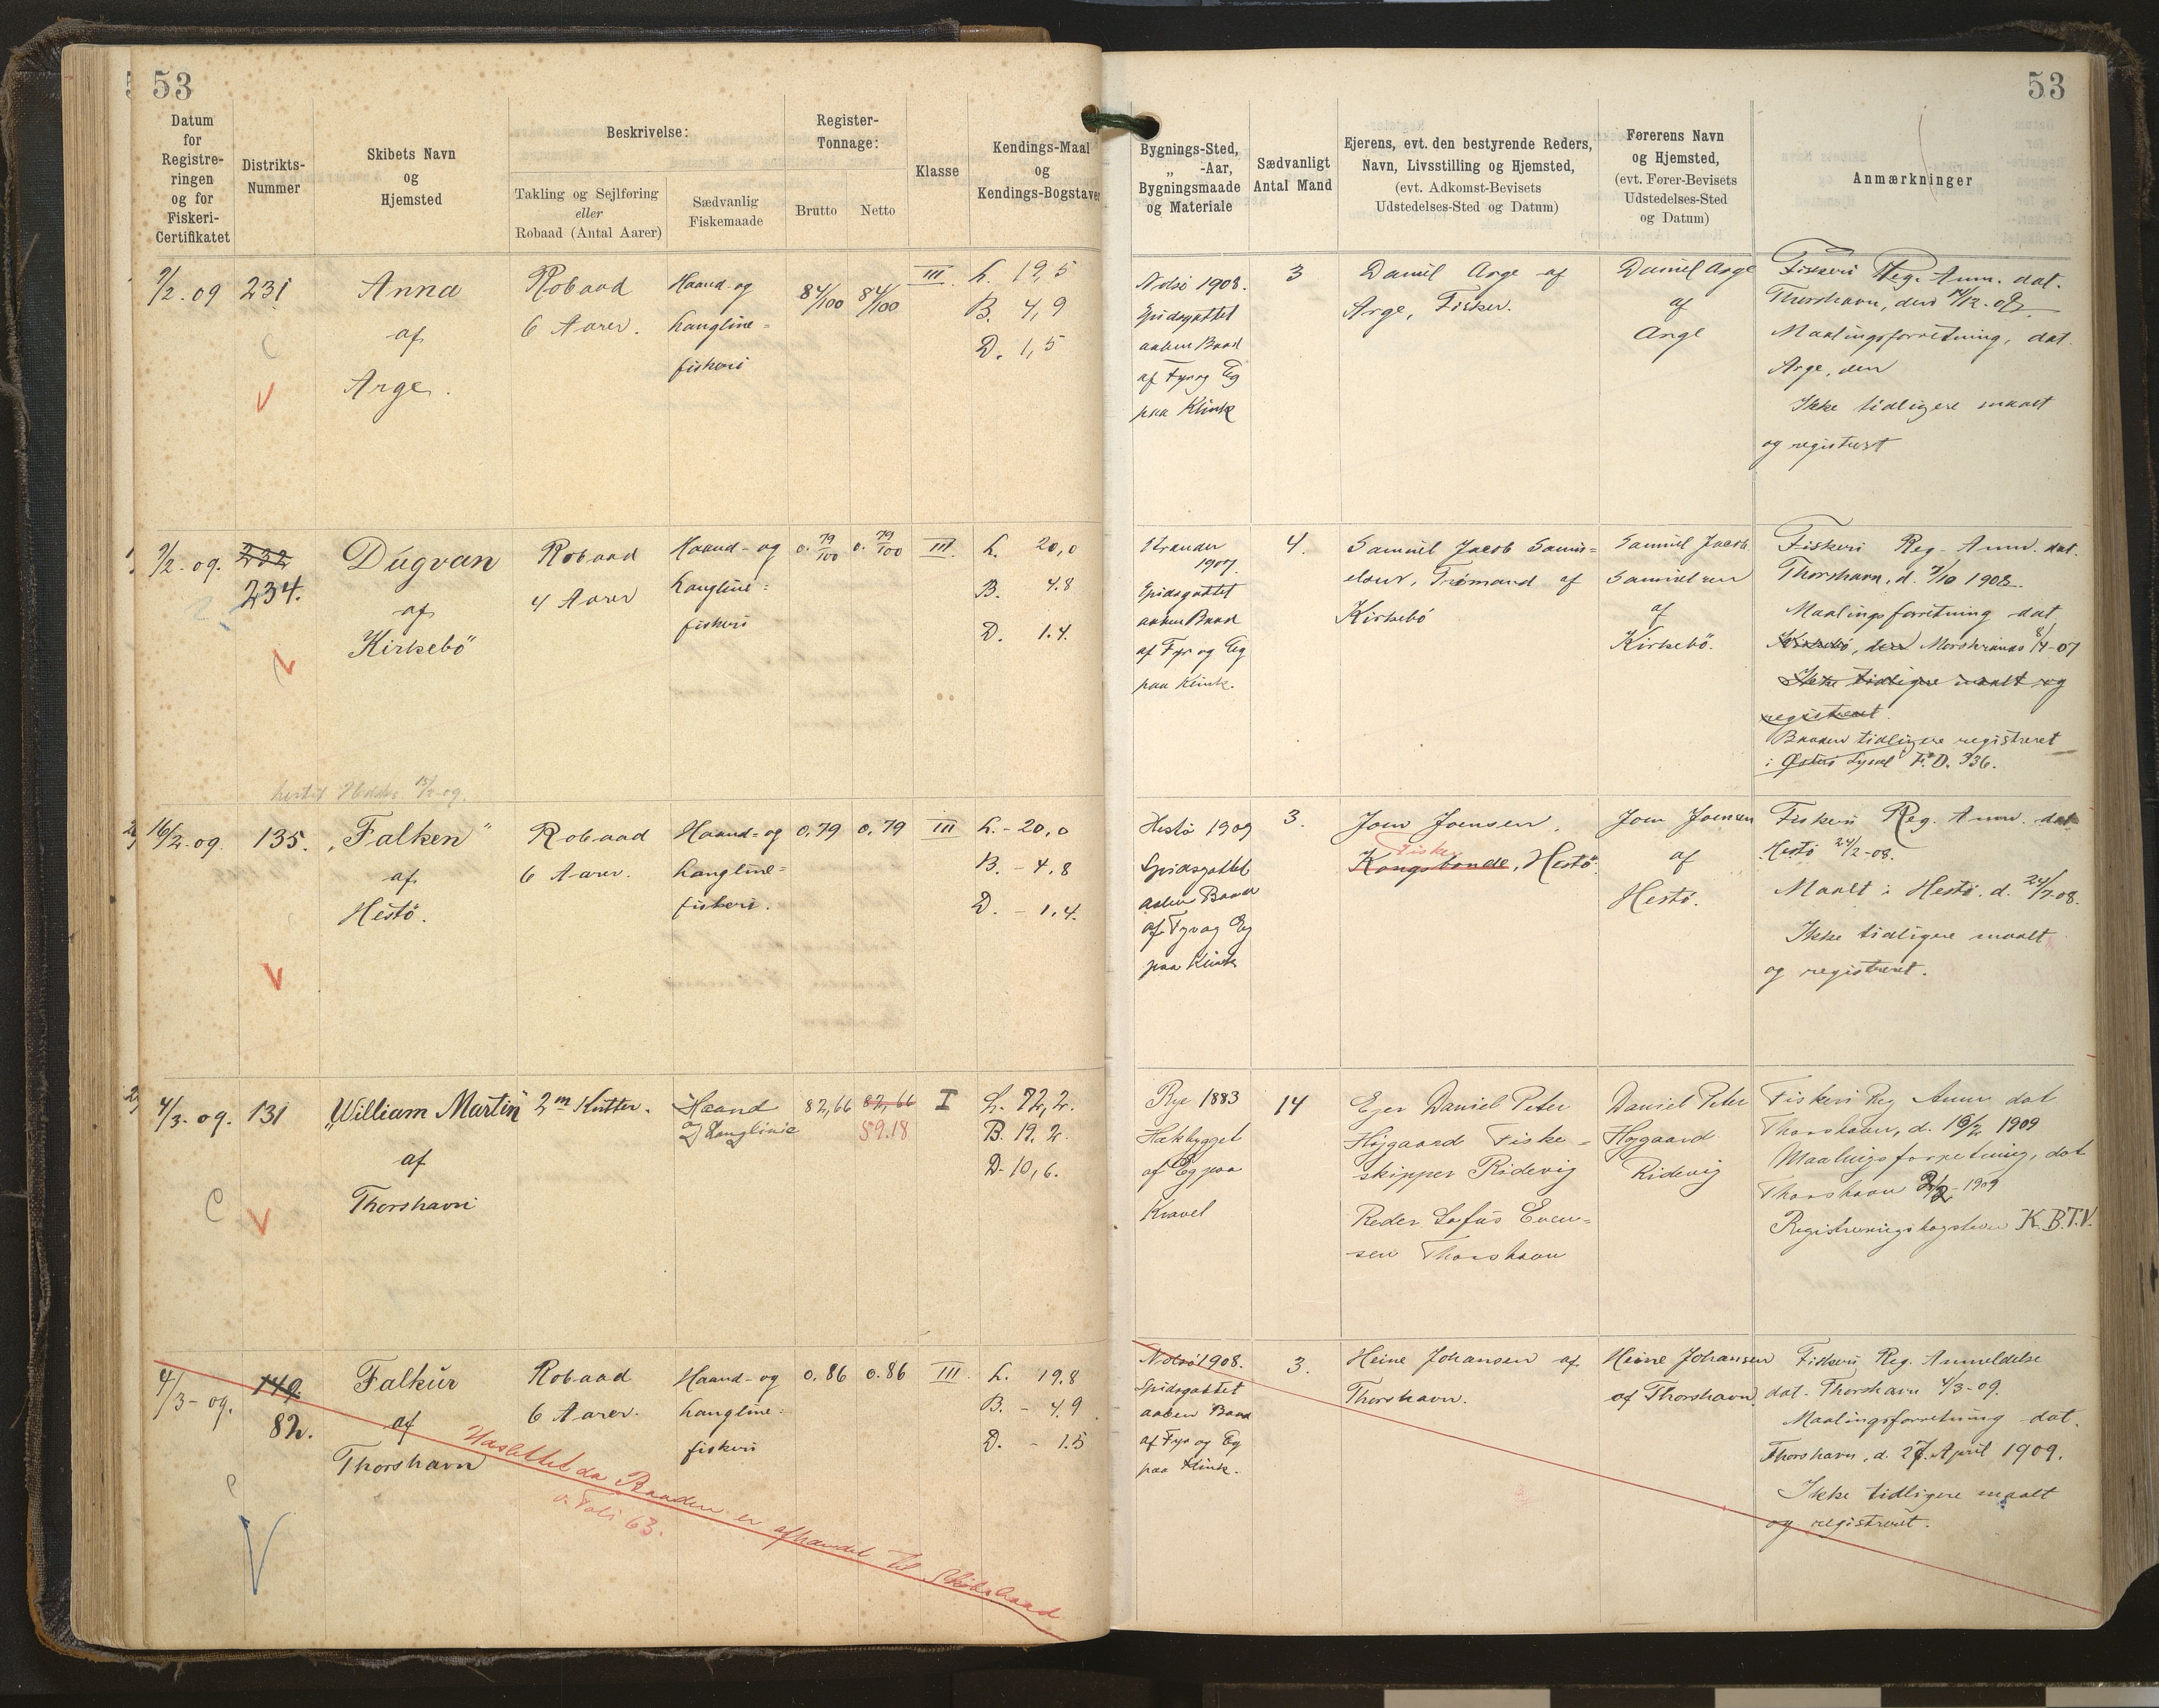 53
53
Datum
for
Registre-
ringen
og for
Fiskeri-
Certifikatet
Distrikts-
Nummer
Skibets Navn
og
Hjemsted
Beskrivelse:
Takling og Sejlføring
eller
Robaad (Antal Aarer)
Sædvanlig
Fiskemaade
Register-
Tonnage:
Brutto
Netto
Klasse
Kendings-Maal
og
Kendings-Bogstaver
Bygnings-Sted,
„ -Aar,
Bygningsmaade
og Materiale
Sædvanligt
Antal Mand
Ejerens, evt. den bestyrende Reders,
Navn, Livsstilling og Hjemsted,
(evt. Adkomst-Bevisets
Udstedelses-Sted og Datum)
Førerens Navn
og Hjemsted,
(evt. Fører-Bevisets
Udstedelses-Sted
og Datum)
Anmærkninger
9/2-09
231
Anna
af
Arge.
Robaad
6 Aarer.
Haand-og
Langline=
fiskeri
84/100
84/100
III
L. 19,5
B. 4,9
D. 1,5
Nolsö 1908.
Spidsgattet
aaben Baad
af Fyr og Eg
paa Klink
3
Daniel Arge af
Arge, Fisker.
Daniel Arge
af
Arge
Fiskeri Reg. Anm. dat.
Thorshavn, den
Maalingsforretning, dat.
Arge, den
Ikke tidligere maalt
og registrert
9/2-09.
232
234.
Dúgvan
af
Kirkebö
Robaad
4 Aarer
Haand-og
Langline=
fiskeri
0.79/100
0.79/100
III.
L. 20,0
B. 4.8
D. 1.4.
Strander
1907.
Spidsgattet
aaben Baad
af Fyr og Eg
paa Klink.
4.
Samuel Jacob Samu=
elsen, Tromand af
Kirkebö
Samuel Jacob
Samuelsen
af
Kirkebö.
Fiskeri Reg. Anm. dat.
Thorshavn, d. 9/10 1908.
Maalingsforretning dat.
Kirkebö, den Morskranes 8/4-07
Ikke tidligere maalt og
registreret.
Baaden tidligere registreret
i Öströ Syssel F.D. 336.
16/2-09.
135.
„Falken"
af
Hestö.
Robaad
6 Aarer.
Haand=og
Langline=
fiskeri.
0.79
0.79
III
L. - 20,0
B. - 4,8
D. - 1,4.
Hestö 1909
Spidsgattet
aaben Baad
af Fyr og Eg
paa Klink
3.
Joen Joensen,
Fisker
Kongsbonde, Hestö.
Joen Joensen
af
Hestö.
Fiskeri Reg. Anm. dat
Hestö 24/2-08.
Maalt i Hestö. d. 24/2-08.
Ikke tidligere maalt
og registreret.
4/3-09.
131
„William Martin"
af
Thorshavn
2m Kutter.
Haand
og Langlinie
82,66
82,66
59.18
I
L. 72,2.
B. 19.2.
D. 10,6.
Rye 1883
Hækbygget
af Eg paa
Kravel
14
Ejer Daniel Peter
Højgaard Fiske=
skipper Ridevig
Reder Lofus Even=
sen Thorshavn
Daniel Peter
Højgaard
Ridevig
Fiskeri Reg Anm dat
Thorshavn, d. 16/2 1909
Maalingsforretning, dat
Thorshavn
1909
Registreringsbogstaver K.B.T.V.
4/3-09.
149.
82.
Falkur
af
Thorshavn
Robaad
6 Aarer.
Haand-og
Langline=
fiskeri
0.86
0.86
III.
L. 19.8
B. - 4.9
D. - 1.5
Nolsö 1908.
Spidsgattet
aaben Baad
af Fyr og Eg
paa Klink.
3.
Heine Johansen af
Thorshavn.
Heine Johansen
af Thorshavn.
Fiskeri Reg. Anmeldelse
dat. Thorshavn 4/3-09.
Maalingsforretning dat.
Thorshavn, d. 27. April 1909.
Ikke tidligere maalt
og registreret.
Udslettet da Baaden er afhændet til Skibsbaad
v. Foli 63.